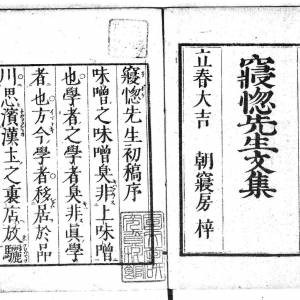 寢惚先生文集
立春大吉 朝寢房 梓
寢惚先生初稿序
味噌之味噌臭非上味噌
也學者之學者臭非眞學
者也方今學者移居於品
川思濱漢土之裏店放驪